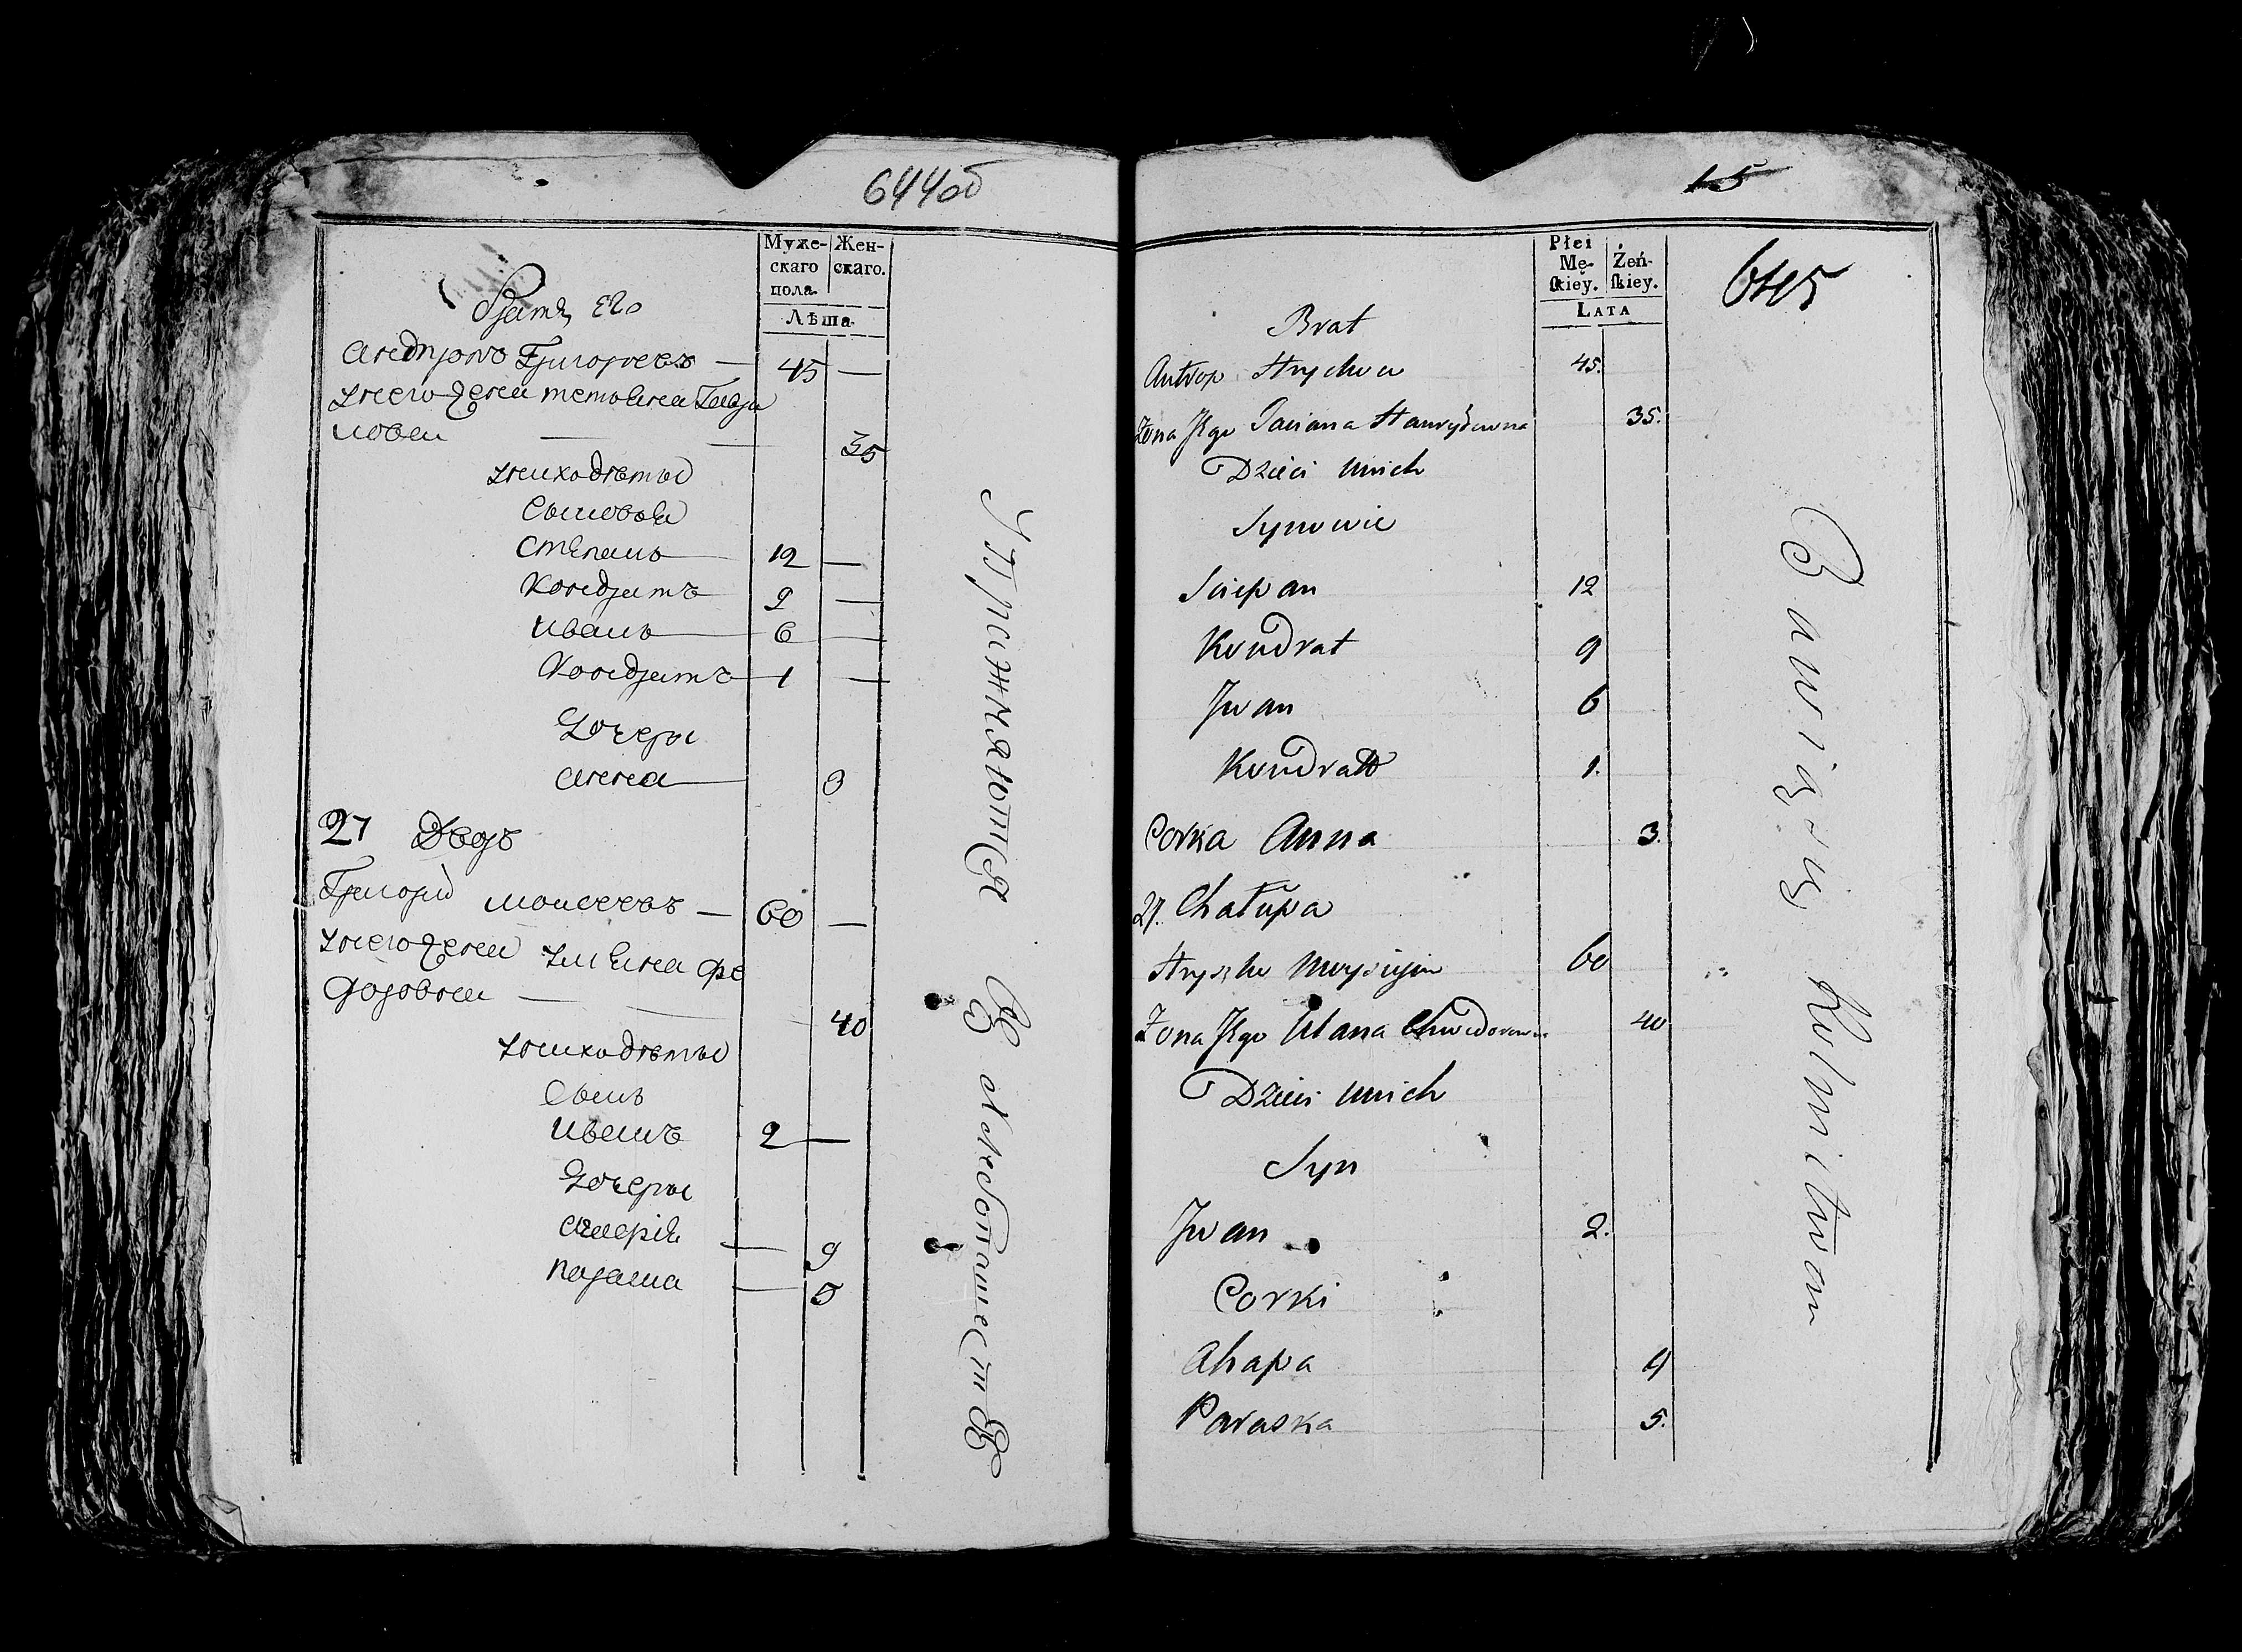 644об
Муже-
скаго
пола.
Жен-
скаго.
Лѣта.
братъ его
Андронъ Григорьевъ — 45 —
унего жена татьяна Гаври
лова — 35
унихъ дѣты
Сыновья
Степанъ 12 —
Кондратъ 9 —
иванъ 6 —
Кондратъ 1 —
Дочеры
анна 3
27 Дворъ
Григорій моисеевъ — 60 —
унего жена ульяна фе
дорова — 40
унихъ дѣты
Сынъ
иванъ 2 —
Дочеры
агафія — 9
параска — 5
Упражняются В хлебопашествѣ
15
645
Płei
Mę-
skiey.
Żeń-
skiey.
LATA
Brat
Antrop Hryhor 45.
Żona Jego Taciana Hauryłowna 35.
Dzieci Unich
Synowie
Sciepan 12
Kondrat 9
Jwan 6
Kondrat 1.
Corka Anna 3.
27. Chałupa
Hryszko 60
Żona Jego Ulana Chwedorowna 40
Dzieci Unich
Syn
Jwan 2.
Corki
Ahapa 9
Paraska 5.
Rolnictwem